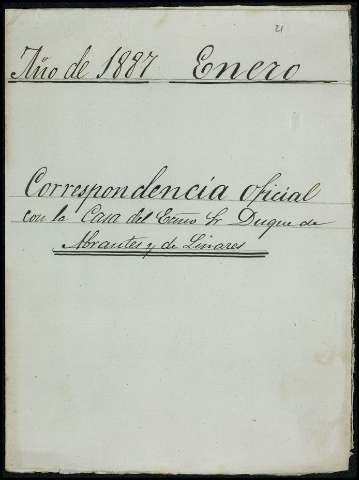 21
Año de 1887 Enero
Correspondencia oficial
con la Casa del Exmo Sr Duque de
Abrantes y de Linares